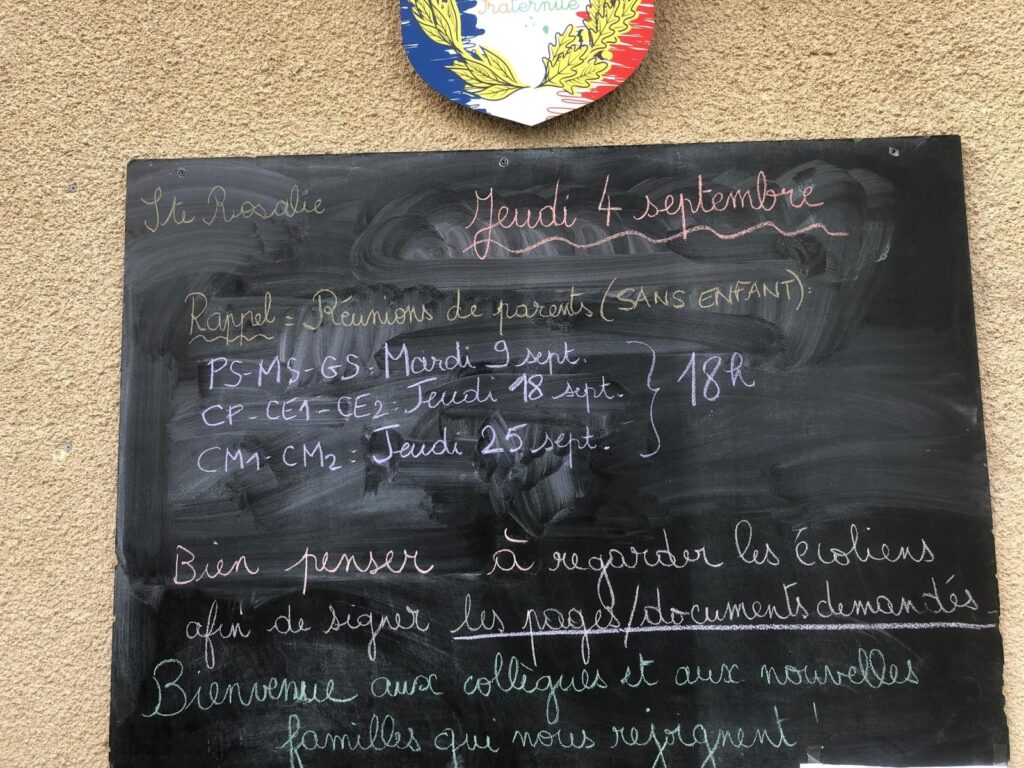 Fraternité
Ste Rosalie
Jeudi 4 septembre
Rappel = Réunions de parents (SANS ENFANT).
PS-MS-GS = Mardi 9 sept.
CP-CE1-CE2 = Jeudi 18 sept.
CM1-CM2 = Jeudi 25 sept.
18h
Bien penser à regarder les écoliens
afin de signer les pages/documents demandés.
Bienvenue aux collègues et aux nouvelles
familles qui nous rejoignent !